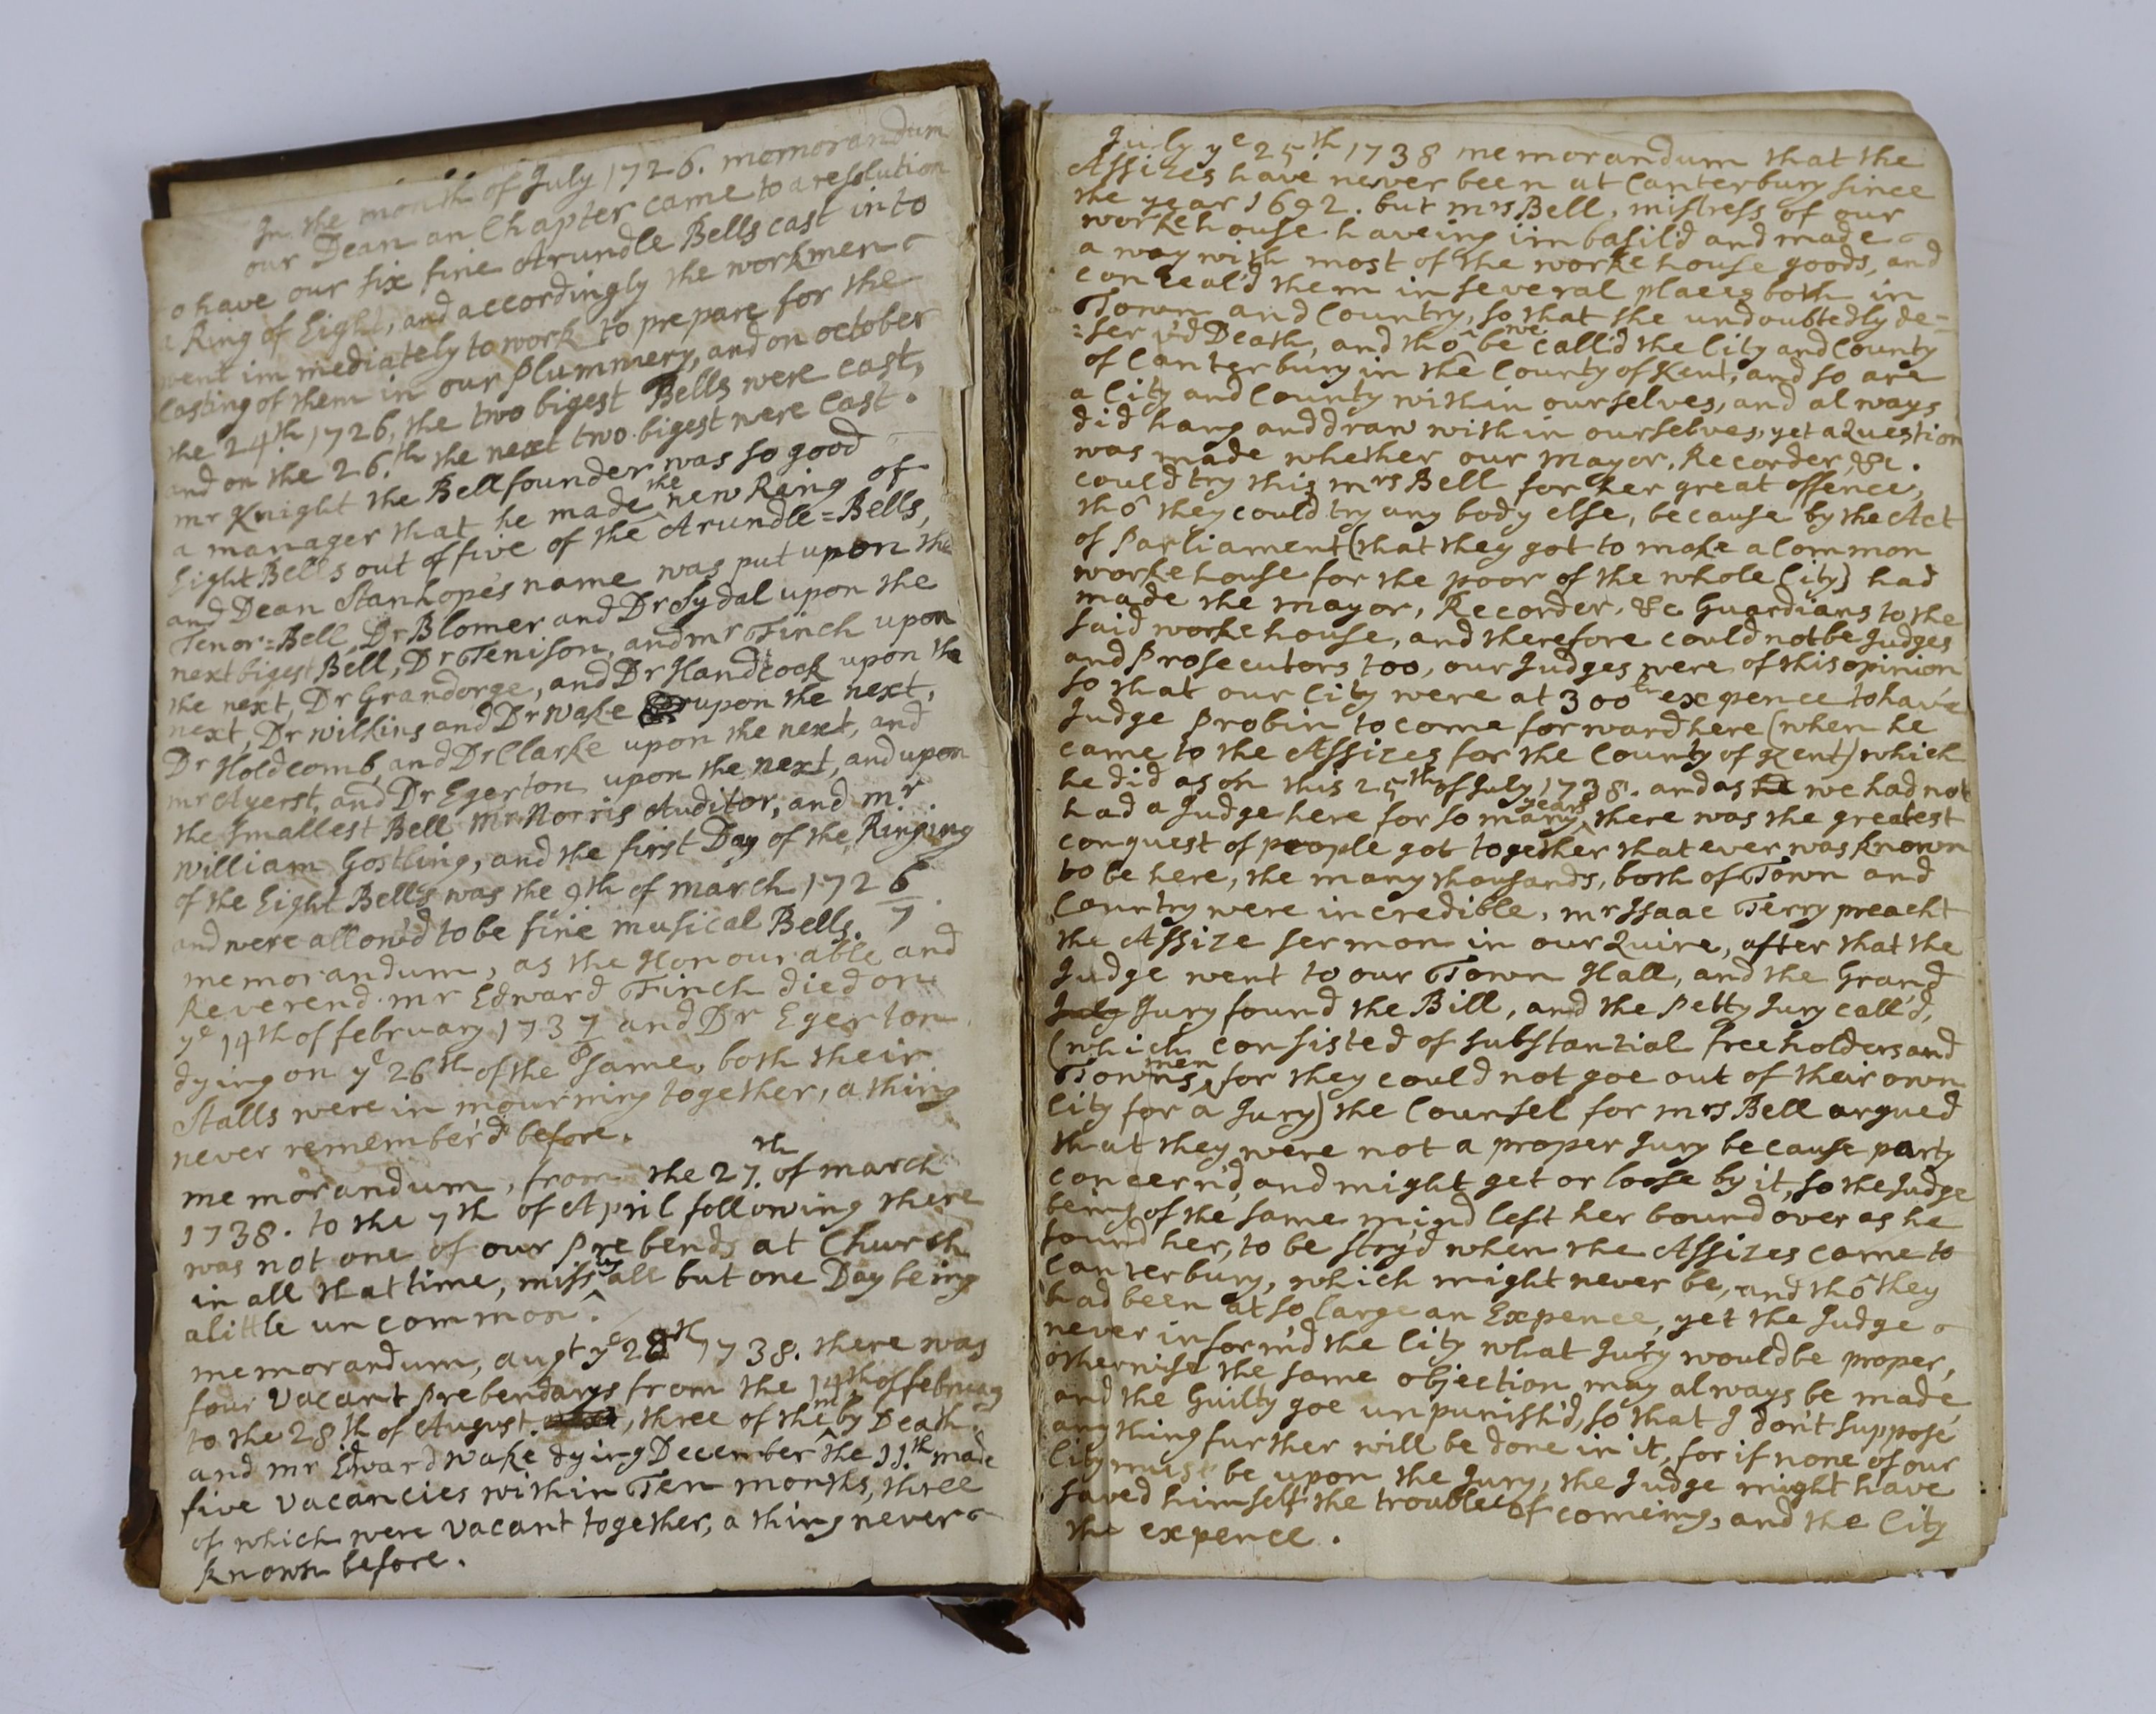 In the month of July 1726. memorandum
our Dean an Chapter came to a resolution
o have our six fine Arundle Bells cast into
a Ring of Eight, and accordingly the workmen
went immediately to work to prepare for the
Casting of them in our Plummery, and on october
the 24th. 1726, the two bigest Bells were cast,
and on the 26.th the next two bigest were Cast.
mr Knight the Bellfounder was so good
a manager that he made ^the new Ring of
Eight Bells out of five of the Arundle=Bells,
and Dean Stanhope's name was put upon the
Tenor=Bell, Dr Blomer and Dr Sydal upon the
next bigest Bell, Dr Tenison, and mr Finch upon
the next, Dr Grandorge, and Dr Handcock upon the
next, Dr wilkins and Dr wake upon the next,
Dr Holdcomb, and Dr Clarke upon the next, and
mr Ayerst, and Dr Egerton upon the next, and upon
the smallest Bell mr Norris Auditor, and mr.
William Gostling, and the first Day of the Ringing
of the Eight Bells was the 9th of march 172 6/7.
and were allow'd to be fine musical Bells.
memorandum, as the Honourable and
Reverend mr Edward Finch died on
ye 14th of february 173 7/8 and Dr Egerton
dying on ye 26th of the same, both their
Stalls were in mourning together, a thing
never remember'd before.
memorandum, from the 27.th of march
1738. to the 7th of April following there
was not one of our Prebends at Church
in all that time, miss all but one Day being
a little uncommon.
memorandum, augt ye 28th 1738. there was
four Vacant Prebendarys from the 14th of februay
to the 28th of August, three of them by Death
and mr Edward wake dying December ^the 11th made
five Vacancies within Ten months, three
of which were Vacant together, a thing never
known before.
July ye 25th. 1738 memorandum that the
Assizes have never been at Canterbury since
the year 1692. but mrs Bell, mistress of our
workehouse haveing imbasil'd and made
a way with most of the workehouse goods, and
conceal'd them in several places both in
Town and Country, so that she undoubtedly de=
=serv'd Death, and thô ^we be call'd the City and County
of Canterbury in the County of Kent, and so are
a City and County within ourselves, and always
did hang and draw within ourselves, yet a Question
was made whether our mayor, Recorder, &c.
could try this mrs Bell for her great offence,
thô they could try any body else, because by the Act
of Parliament (that they got to make a Common
workehouse for the poor of the whole City) had
made the mayor, Recorder, &c Guardians to the
said workehouse, and therefore could not be Judges
and Prosecutors too, our Judges were of this opinion
so that our City were at 300 expence to have
Judge Probin to come forward here (when he
came to the Assizes for the County of Kent) which
he did as on this 25th of July 1738. and as he we had not
had a Judge here for so many ^years there was the greatest
conquest of people got together that ever was known
to be here, the many thousands, both of Town and
Country were incredible, mr Isaac Terry preacht
the Assize sermon in our Quire, after that the
Judge went to our Town Hall, and the Grand
July Jury found the Bill, and the Petty Jury call'd,
(which consisted of substantial freeholders and
Towns^men, for they could not goe out of their own
City for a Jury) the Counsel for mrs Bell argued
that they were not a proper Jury because party
concern'd, and might get or loose by it, so the Judge
being of the same mind left her bound over as he
found her, to be try'd when the Assizes came to
Canterbury, which might never be, and thô they
had been at so large an Expence, yet the Judge
never inform'd the City what Jury would be proper,
otherwise the same objection may always be made,
and the Guilty goe unpunish'd, so that I don't suppose
any thing further will be done in it, for if none of our
City must be upon the Jury, the Judge might have
saved himself the trouble of comeing, and the City
the expence.